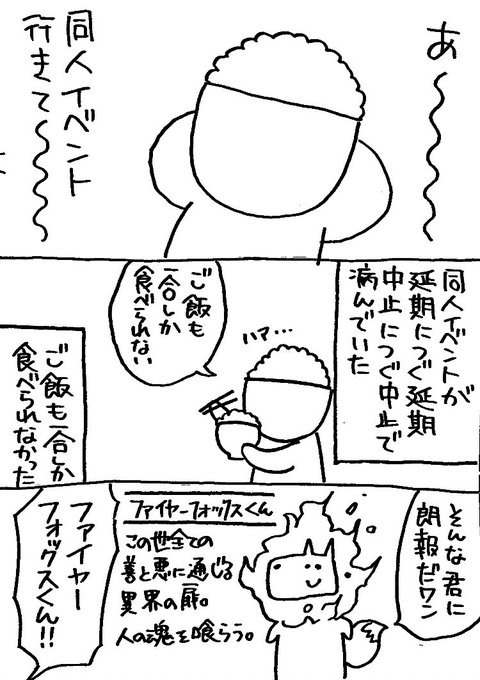 あ〜〜〜
同人イベント
行きて〜〜〜〜
同人イベントが
延期につぐ延期
中止につぐ中止で
病んでいた
ハァ…
ご飯も
一合しか
食べられない
ご飯も一合しか
食べられなかった
そんな君に
朗報だワン
ファイヤーフォックスくん
この世全ての
善と悪に通じる
異界の扉。
人の魂を喰らう。
ファイヤー
フォックスくん!!